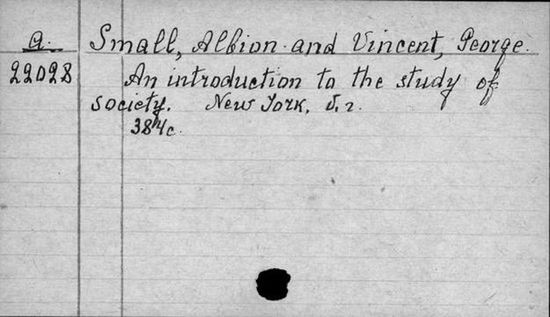 a. Small, Albion and Vincent, George.
22028 An introduction to the study of
society. New York, S. a.
384c.